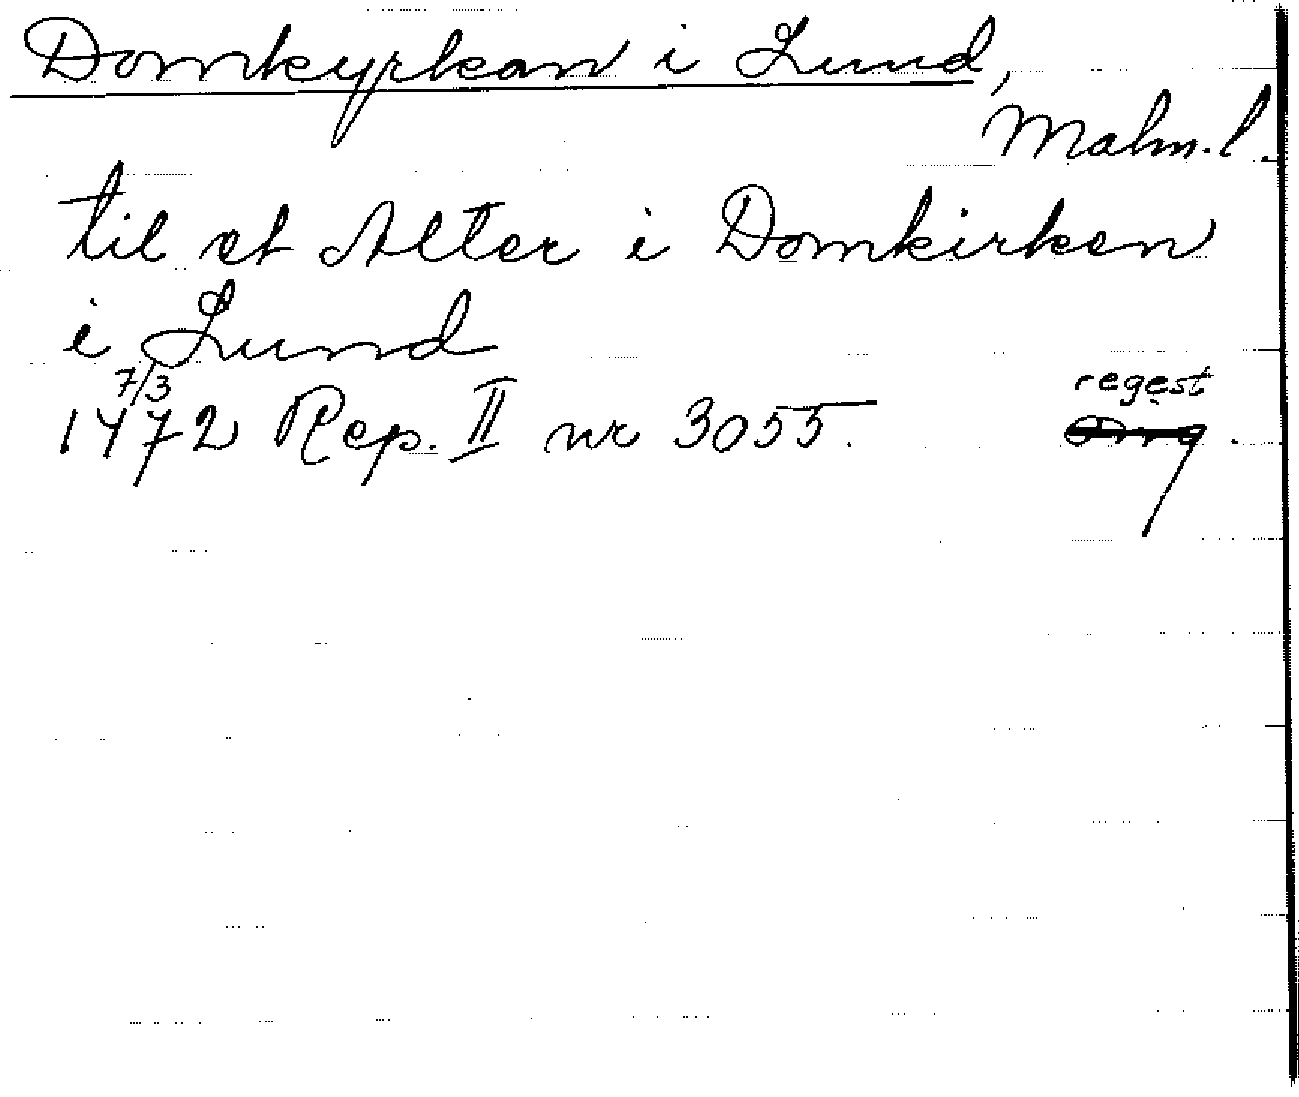 Domkyrkan i Lund,
Malm.l.
til et Alter i Domkirken
i Lund
7/3 regest
1472 Rep. II nr 3055.